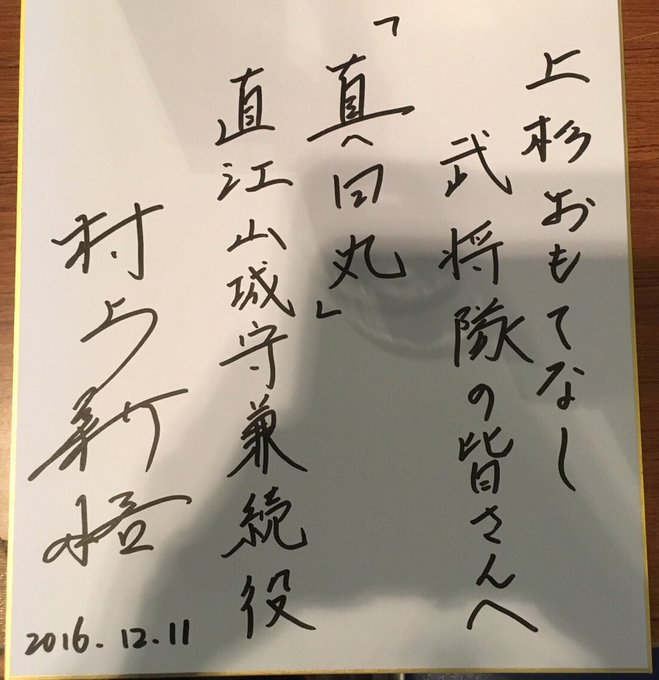 上杉おもてなし
武将隊の皆さんへ
「真田丸」
直江山城守兼続役
村上新悟
2016.12.11